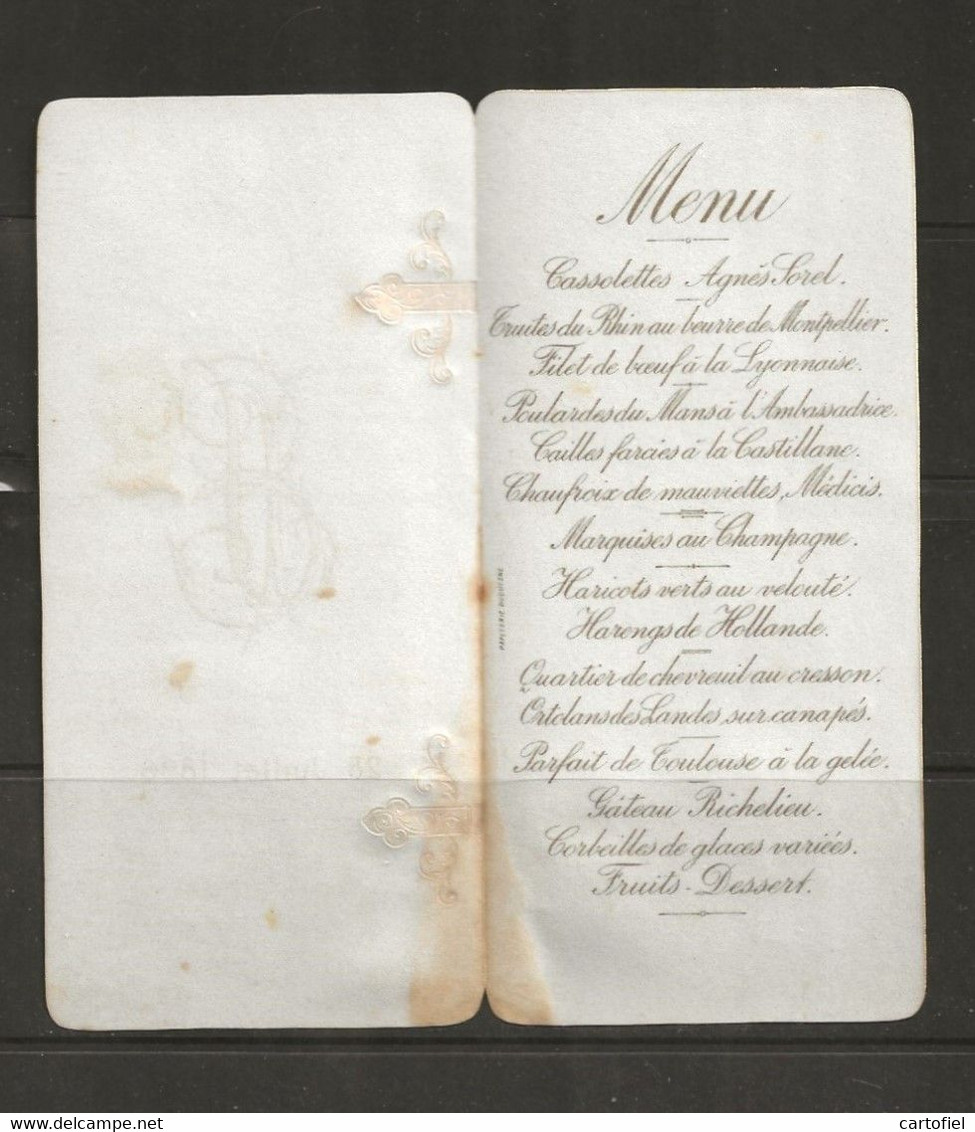 Menu
Cassolettes Agnès Sorel.
Truites du Rhin au beurre de Montpellier.
Filet de bœuf à la Lyonnaise.
Poulardes du Mans à l'Ambassadrice.
Cailles farcies à la Castillane.
Chaufroix de mauviettes, Médicis.
Marquises au Champagne.
Haricots verts au velouté.
Harengs de Hollande.
Quartier de chevreuil au cresson.
Ortolans des Landes sur canapés.
Parfait de Toulouse à la gelée.
Gâteau Richelieu.
Corbeilles de glaces variées.
Fruits - Dessert.
cartofiel